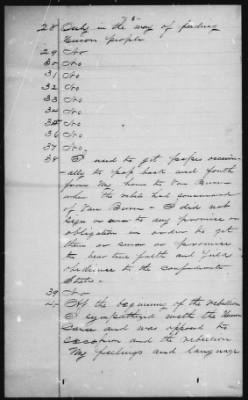 28 Only in the way of feeding
Union people
29 No
30 No
31 No
32 No
33 No
34 No
35 No
36 No
37 No
38 I used to get passes occasion-
ally to pass back and forth
from my home to Van Buren
when the rebels had command
of Van Buren - I did not
sign or swear to any promise or
obligation in order to get
them or swear or promise
to bear true faith and yield
obedience to the confederate
States.
39 No
40 At the beginning of the rebellion
I sympathized with the Union
Cause and was opposed to
secession and the rebellion
My feelings and language